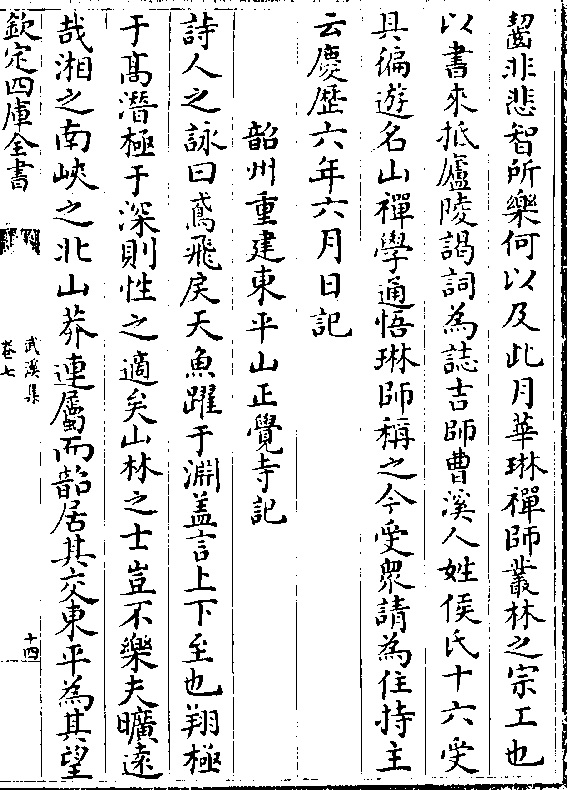 齧非悲智所樂何以及此月華琳禪師叢林之宗工也
以書來抵廬陵謁詞為誌吉師曹溪人姓侯氏十六受
具徧遊名山禪學通悟琳師稱之今受眾請為住持主
云慶歷六年六月日記
韶州重建東平山正覺寺記
詩人之詠曰鳶飛戾天魚躍于淵盖言上下至也翔極
于髙潛極于深則性之適矣山林之士豈不樂夫曠遠
哉湘之南峽之北山莽連屬而韶居其交東平為其望
欽定四庫全書
武溪集
卷七
十四